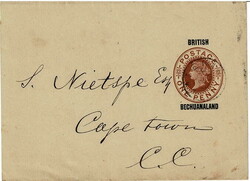 BRITISH
POSTAGE
ONE PENNY
BECHUANALAND
S. Nietspe Esq
Cape Town
C.C.